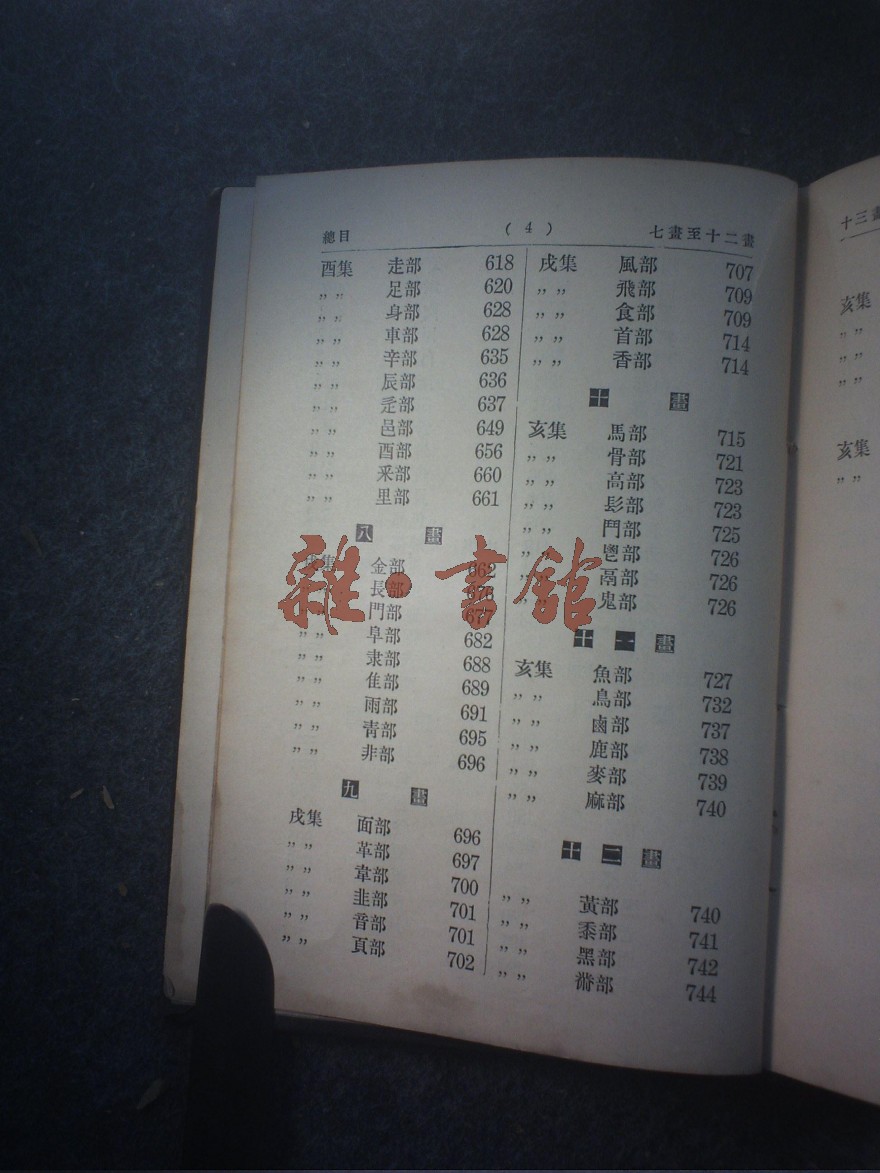 總目 ( 4 ) 七畫至十二畫
酉集 走部 618
〃〃 足部 620
〃〃 身部 628
〃〃 車部 628
〃〃 辛部 635
〃〃 辰部 636
〃〃 辵部 637
〃〃 邑部 649
〃〃 酉部 656
〃〃 釆部 660
〃〃 里部 661
八 畫
金部 662
長部 676
門部 677
〃〃 阜部 682
〃〃 隶部 688
〃〃 隹部 689
〃〃 雨部 691
〃〃 靑部 695
〃〃 非部 696
九 畫
戌集 面部 696
〃〃 革部 697
〃〃 韋部 700
〃〃 韭部 701
〃〃 音部 701
〃〃 頁部 702
戌集 風部 707
〃〃 飛部 709
〃〃 食部 709
〃〃 首部 714
〃〃 香部 714
十 畫
亥集 馬部 715
〃〃 骨部 721
〃〃 高部 723
〃〃 髟部 723
〃〃 鬥部 725
〃〃 鬯部 726
〃〃 鬲部 726
〃 鬼部 726
十 一 畫
亥集 魚部 727
〃〃 鳥部 732
〃〃 鹵部 737
〃〃 鹿部 738
〃〃 麥部 739
〃〃 麻部 740
十 二 畫
〃〃 黃部 740
〃〃 黍部 741
〃〃 黑部 742
〃〃 黹部 744
雜·書館
十三畫
亥集
〃〃
〃〃
〃〃
亥集
〃〃